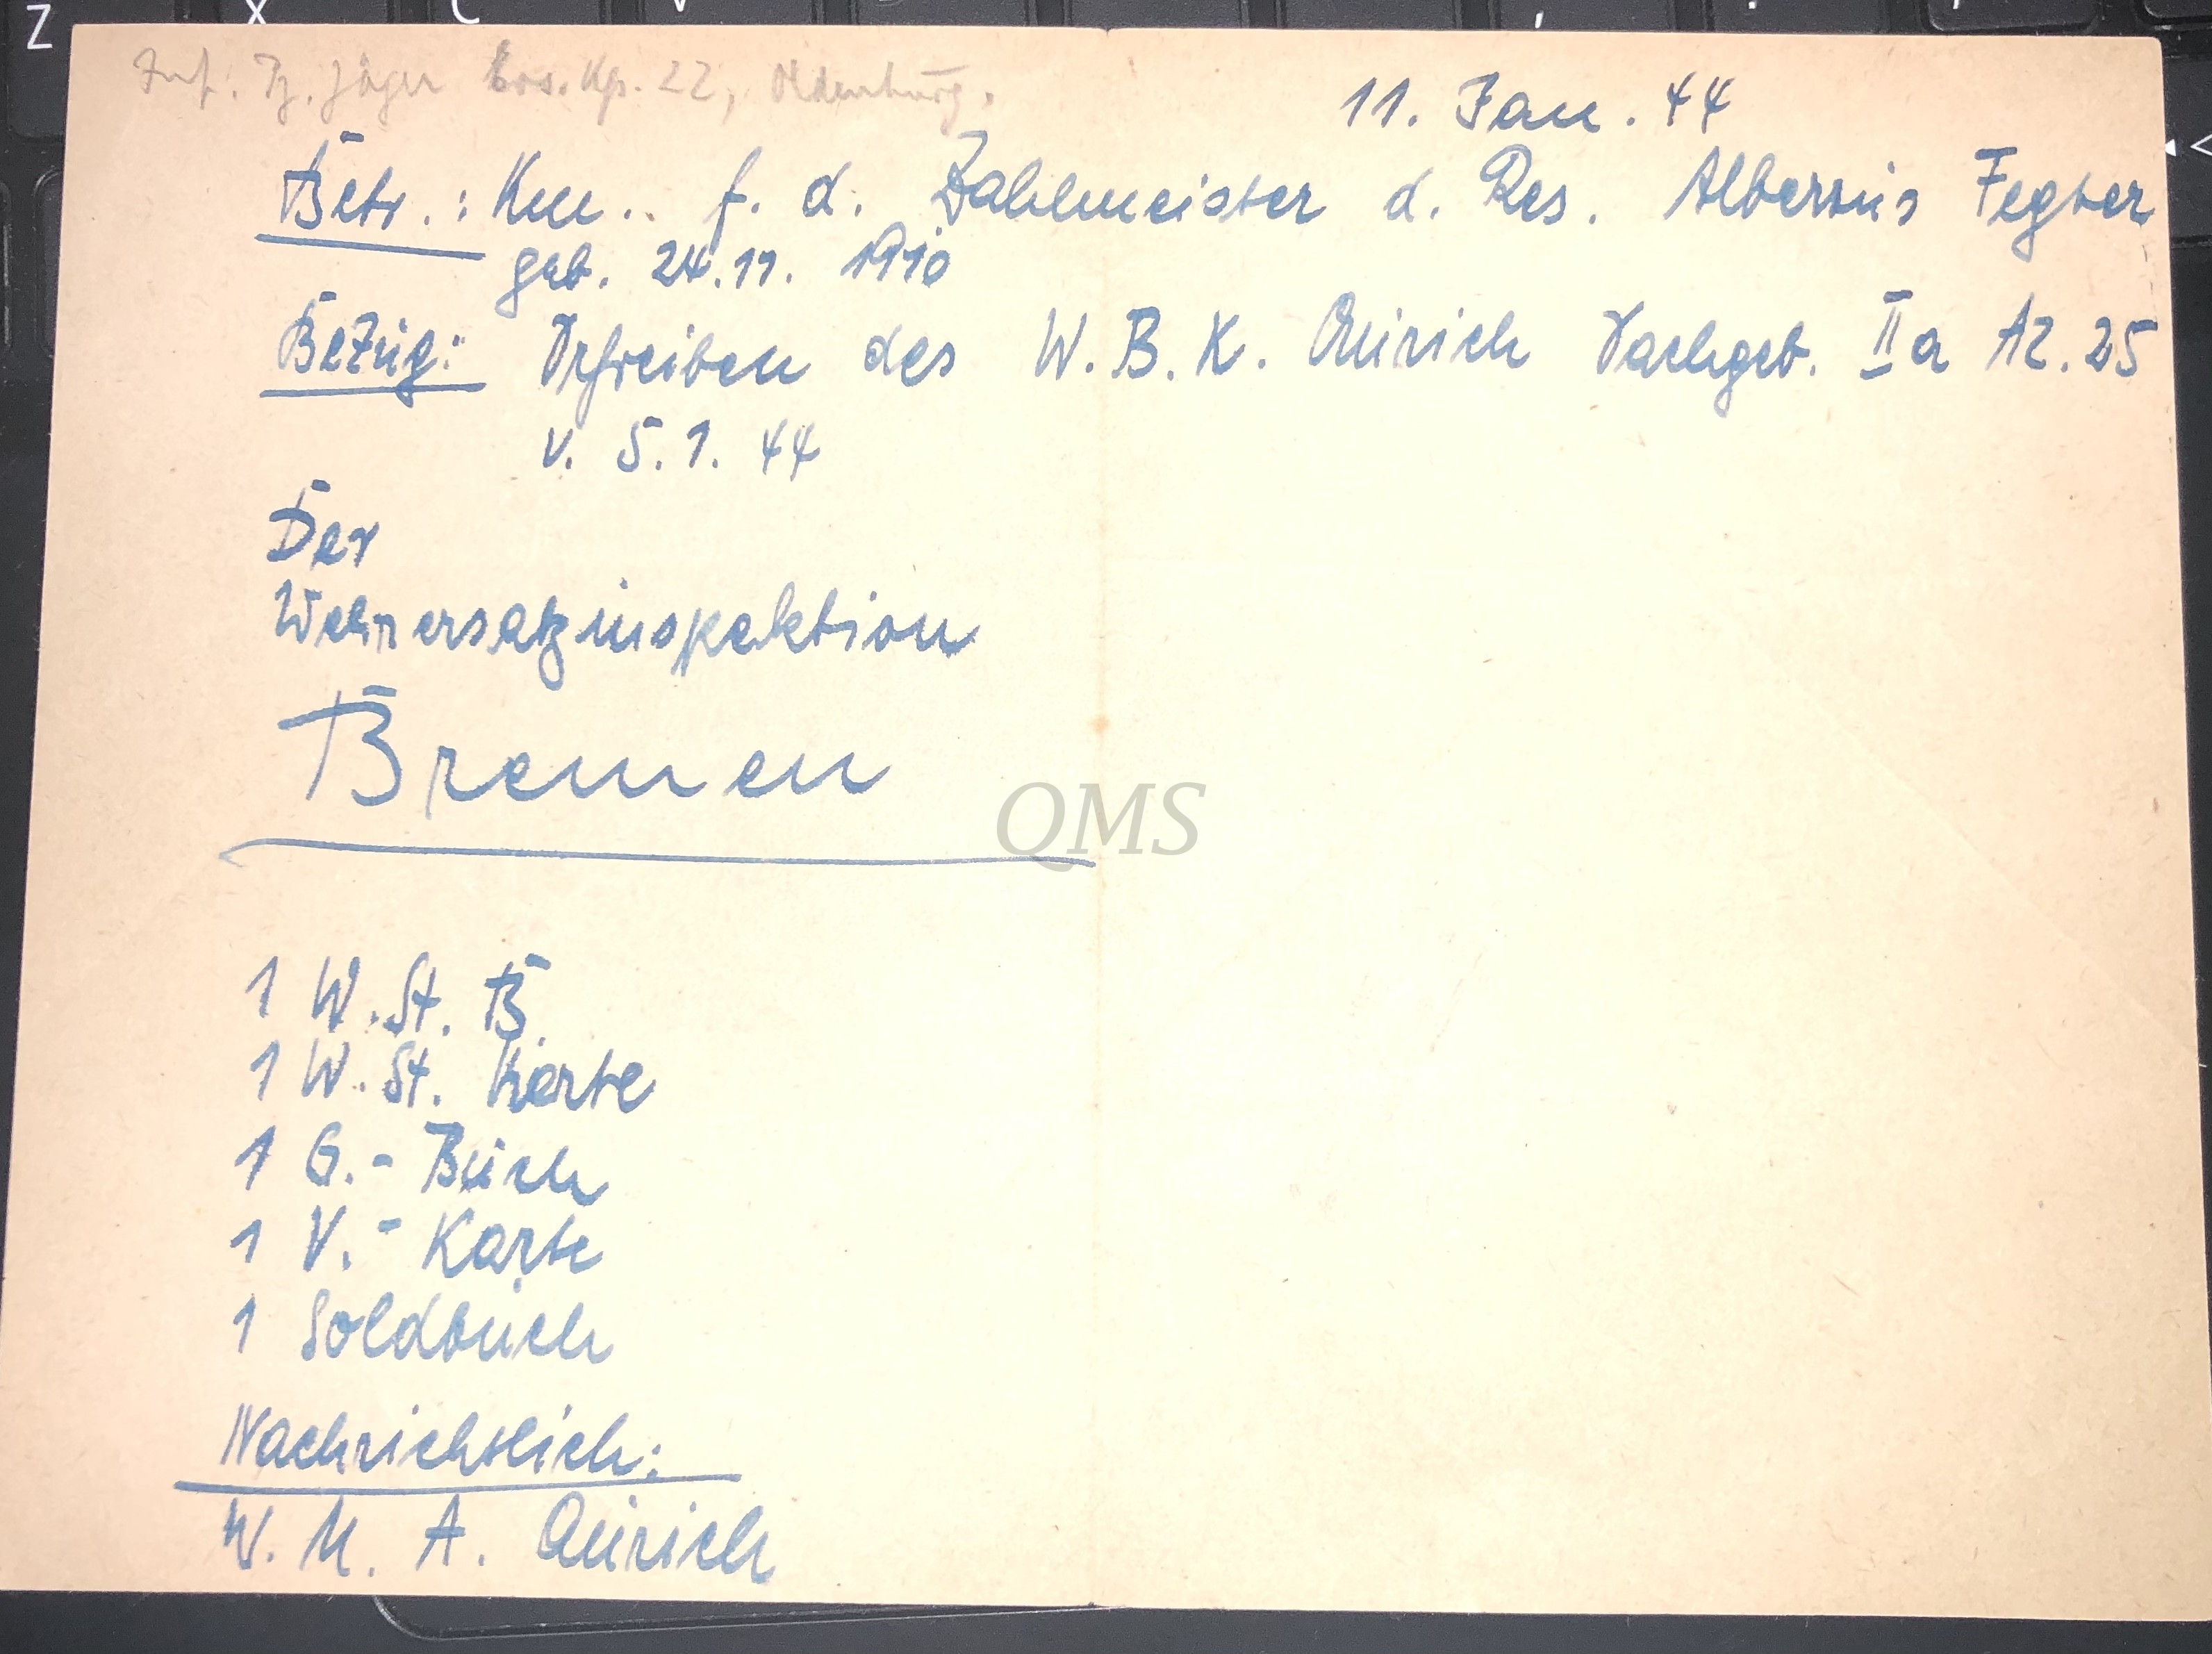 Inf. Pz. Jäger Ers. Kp. 22, Oldenburg.
11. Jan. 44
Betr.: Km.. f. d. Zahlmeister d. Res. Albertus Fegter
geb. 24.11. 1910
Bezug: Schreiben des W. B. K. Aurich Sachgeb. II a Az. 25
v. 5. 1. 44
Der
Wehrersatzinspektion
Bremen
QMS
1 W. St. B.
1 W. St. Karte
1 G.- Buch
1 V.- Karte
1 Soldbuch
Nachrichtlich:
W. M. A. Aurich